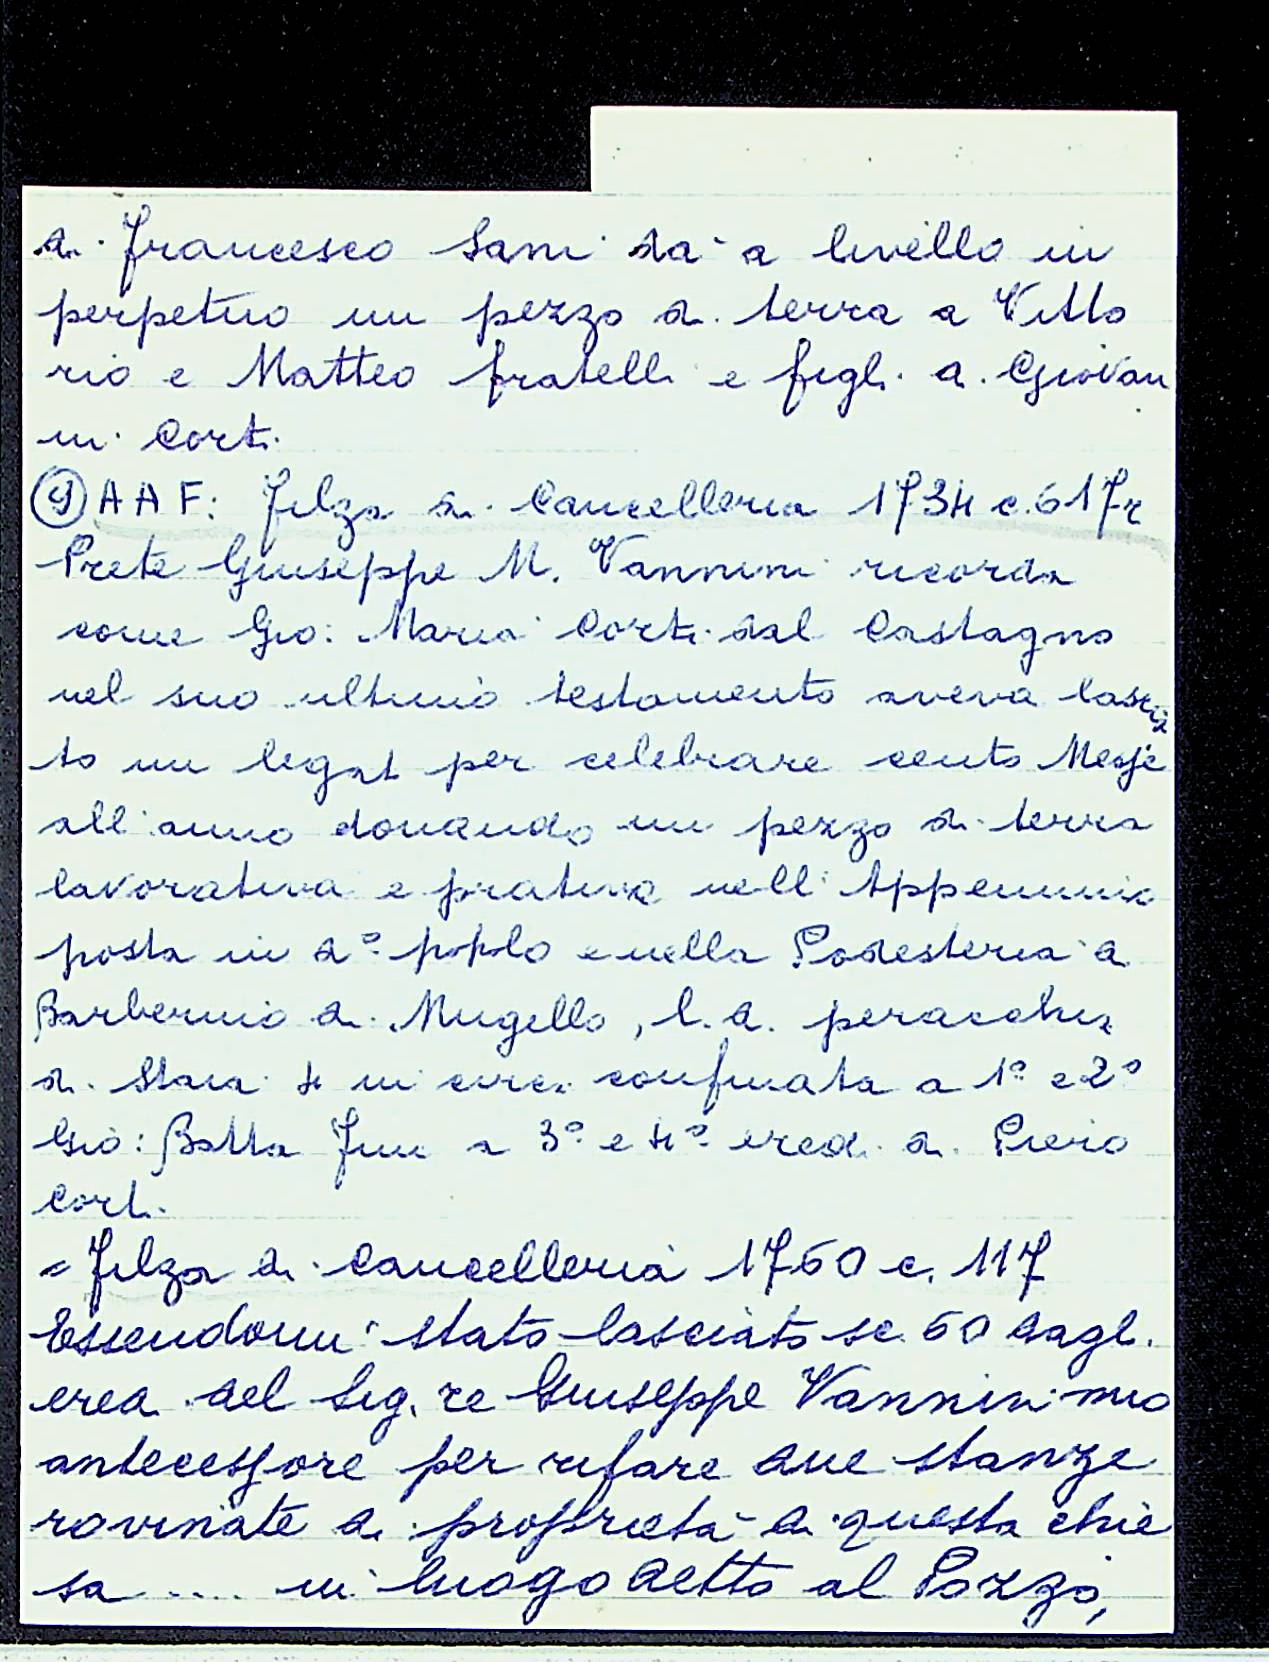 di Francesco Sani dà a livello in
perpetuo un pezzo di terra a Vitto
rio e Matteo fratelli e figli di Giovan
ni Corti.
9) A A F: Filza di Cancelleria 1734 c. 617r
Prete Giuseppe M. Vannini ricorda
come Gio: Maria Corti dal Castagno
nel suo ultimo testamento aveva lascia
to un legat per celebrare cento Messe
all'anno donando un pezzo di terra
lavorativa e prativa nell'Appennino
posta in do popolo e nella Podesteria di
Barberino di Mugello, l.d.
di Staia 4 in circa confinata a 1° e 2°
Gio: Batta a 3° e 4° eredi di Piero
Corti.
= Filza di Cancelleria 1760 c. 117
Essendomi stato lasciato sc. 60 dagli
eredi del Sig.re Giuseppe Vannini mio
antecessore per rifare due stanze
rovinate di proprietà di questa chie
sa .... in luogo detto al Pozzo,